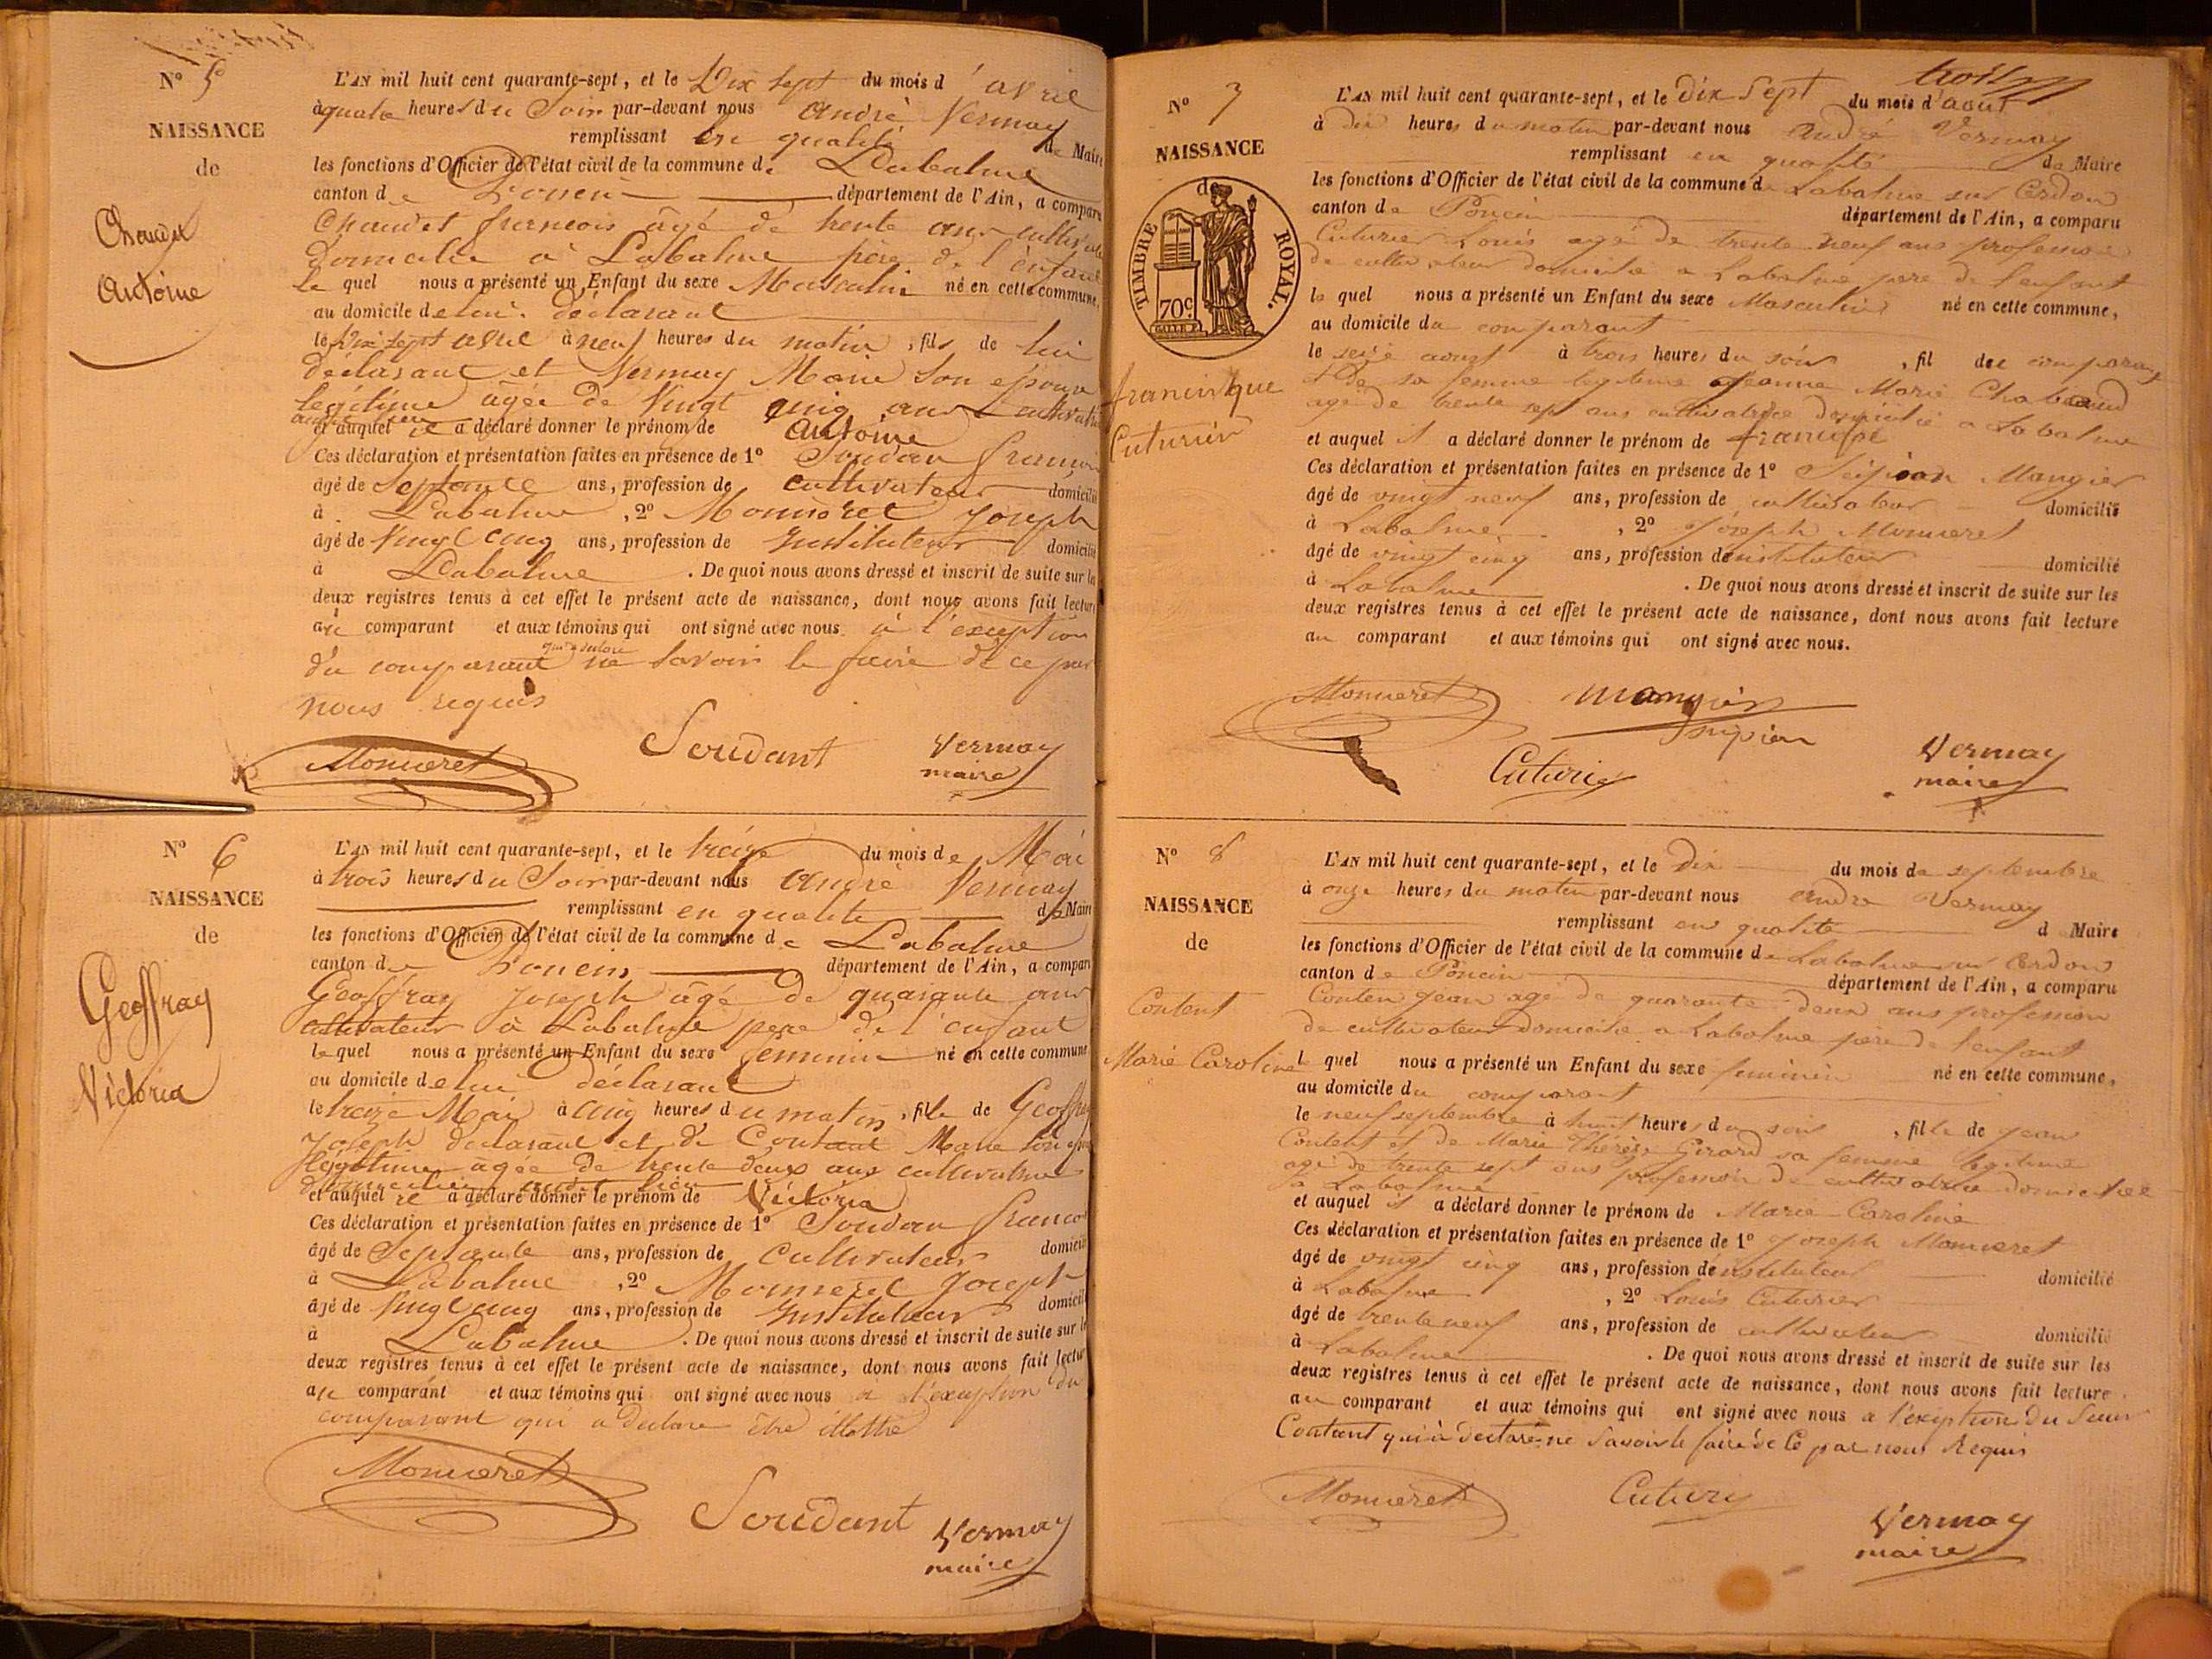 N° 5
NAISSANCE
de
Chaudet
Antoine
L'AN mil huit cent quarante-sept, et le Dix sept du mois d'avril
à quatre heures du Soir par-devant nous André Vermay
remplissant en qualité de Maire
les fonctions d'Officier de l'état civil de la commune de Labalme
canton de Poncin département de l'Ain, a comparu
Chaudet francois âgé de trente ans cultivateur
domicilié à Labalme père de l'enfant
Le quel nous a présenté un Enfant du sexe Masculin né en cette commune,
au domicile de lui déclarant
le Dix sept avril à neuf heures du matin, fils de lui
déclarant et Vermay Marie son épouse
légitime âgée de Vingt cinq ans cultivatrice
et auquel il a déclaré donner le prénom de Antoine
Ces déclaration et présentation faites en présence de 1° Soudan francois
âgé de Septante ans, profession de cultivateur domicilié
à Labalme, 2° Monneret Joseph
âgé de Vingt cinq ans, profession de Instituteur domicilié
à Labalme. De quoi nous avons dressé et inscrit de suite sur les
deux registres tenus à cet effet le présent acte de naissance, dont nous avons fait lecture
au comparant et aux témoins qui ont signé avec nous à l'exception
du comparant qui a déclaré ne savoir le faire de ce par
nous requis
Monneret Soudant Vermay
maire
N° 6
NAISSANCE
de
Geoffray
Victoria
L'AN mil huit cent quarante-sept, et le treize du mois de Mai
à trois heures du Soir par-devant nous André Vermay
remplissant en qualité de Maire
les fonctions d'Officier de l'état civil de la commune de Labalme
canton de Poncin département de l'Ain, a comparu
Geoffray Joseph âgé de quarante ans
cultivateur à Labalme père de l'enfant
le quel nous a présenté un Enfant du sexe féminin né en cette commune
au domicile de lui déclarant
le treize Mai à cinq heures du matin, fille de Geoffray
Joseph déclarant et de Contant Marie son
légitime âgée de trente deux ans cultivatrice
domiciliée audit lieu
et auquel il a déclaré donner le prénom de Victoria
Ces déclaration et présentation faites en présence de 1° Soudan francois
âgé de Septante ans, profession de Cultivateur domicilié
à Labalme, 2° Monneret Joseph
âgé de Vingt cinq ans, profession de Instituteur domicilié
à Labalme. De quoi nous avons dressé et inscrit de suite sur les
deux registres tenus à cet effet le présent acte de naissance, dont nous avons fait lecture
au comparant et aux témoins qui ont signé avec nous à l'exception du
comparant qui a déclaré être illettré
Monneret Soudant Vermay
maire
trois
N° 7
NAISSANCE
de
TIMBRE ROYAL.
70c
francisque
Cuturier
L'AN mil huit cent quarante-sept, et le dix sept du mois d'aout
à dix heures du matin par-devant nous André Vermay
remplissant en qualité de Maire
les fonctions d'Officier de l'état civil de la commune de Labalme sur Cerdon
canton de Poncin département de l'Ain, a comparu
Cuturier Louis agé de trente neuf ans profession
de cultivateur domicilié a Labalme pere de l'enfant
le quel nous a présenté un Enfant du sexe Masculin né en cette commune,
au domicile du comparant
le seize aout à trois heures du soir, fil du comparant
et de sa femme legitime Jeanne Marie Chabaud
agé de trente sept ans cultivatrice domicilié a Labalme
et auquel il a déclaré donner le prénom de francisque
Ces déclaration et présentation faites en présence de 1° Scipion Mangier
âgé de vingt neuf ans, profession de cultivateur domicilié
à Labalme, 2° Joseph Monneret
âgé de vingt cinq ans, profession d'instituteur domicilié
à Labalme. De quoi nous avons dressé et inscrit de suite sur les
deux registres tenus à cet effet le présent acte de naissance, dont nous avons fait lecture
au comparant et aux témoins qui ont signé avec nous.
Monneret Mangier
Scipion
Cuturier Vermay
maire
N° 8
NAISSANCE
de
Content
Marie Caroline
L'AN mil huit cent quarante-sept, et le Dix du mois de septembre
à onze heures du matin par-devant nous andré Vermay
remplissant en qualité d Maire
les fonctions d'Officier de l'état civil de la commune de Labalme sur Cerdon
canton de Poncin département de l'Ain, a comparu
Conten jean agé de quarante deux ans profession
de cultivateur domicilié a Labalme père de l'enfant
l quel nous a présenté un Enfant du sexe feminin né en cette commune,
au domicile du comparant
le neuf septembre à huit heures du soir, fille de jean
Content et de Marie Thérèse Girard sa femme legitime
agé de trente sept ans profession de cultivatrice domiciliée
a Labalme
et auquel il a déclaré donner le prénom de Marie Caroline
Ces déclaration et présentation faites en présence de 1° joseph Monneret
âgé de vingt cinq ans, profession d'instituteur domicilié
à Labalme, 2° Louis Cuturier
âgé de trente neuf ans, profession de cultivateur domicilié
à Labalme. De quoi nous avons dressé et inscrit de suite sur les
deux registres tenus à cet effet le présent acte de naissance, dont nous avons fait lecture
au comparant et aux témoins qui ont signé avec nous a l'exeption du Sieur
Contant qui à déclaré ne Savoir le faire de Ce par nous Requis
Monneret Cuturier Vermay
maire